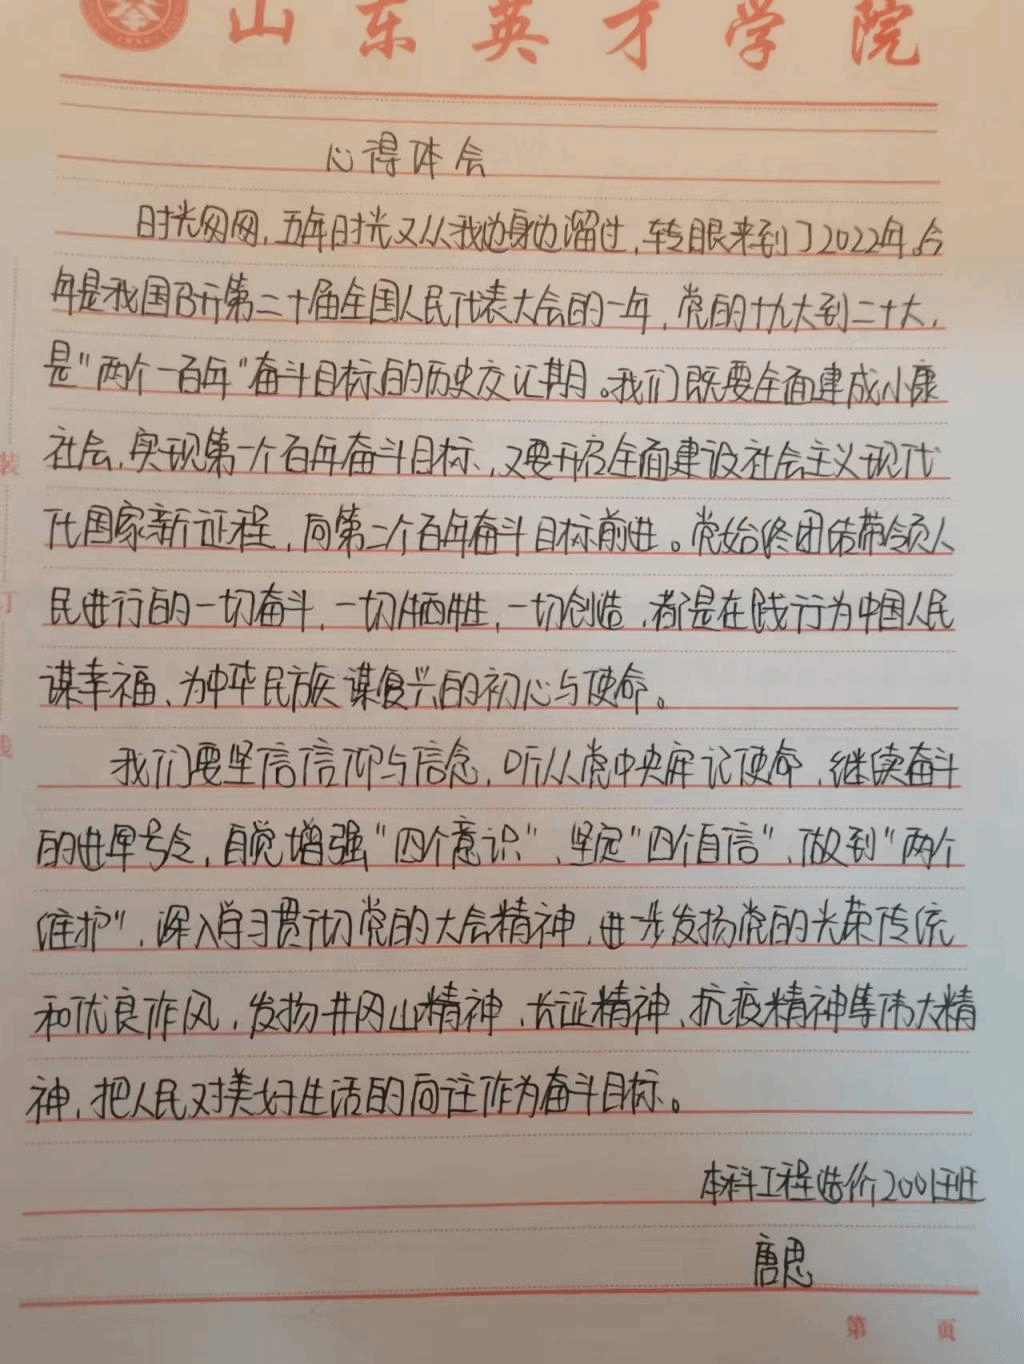 山东英才学院
心得体会
时光匆匆,五年时光又从我边身边溜过,转眼来到了2022年。今
年是我国召开第二十届全国人民代表大会的一年,党的十九大到二十大,
是"两个一百年"奋斗目标的历史交汇期。我们既要全面建成小康
社会,实现第一个百年奋斗目标,又要开启全面建设社会主义现代
代国家新征程,向第二个百年奋斗目标前进。党始终团结带领人
民进行的一切奋斗,一切牺牲,一切创造,都是在践行为中国人民
谋幸福、为中华民族谋复兴的初心与使命。
我们要坚信信仰与信念,听从党中央牢记使命,继续奋斗
的进军号令,自觉增强"四个意识"、坚定"四个自信"、做到"两个
维护",深入学习贯彻党的大会精神,进一步发扬党的光荣传统
和优良作风,发扬井冈山精神、长征精神、抗疫精神等伟大精
神,把人民对美好生活的向往作为奋斗目标。
本科工程造价2001班
唐思
装
订
线
第 页